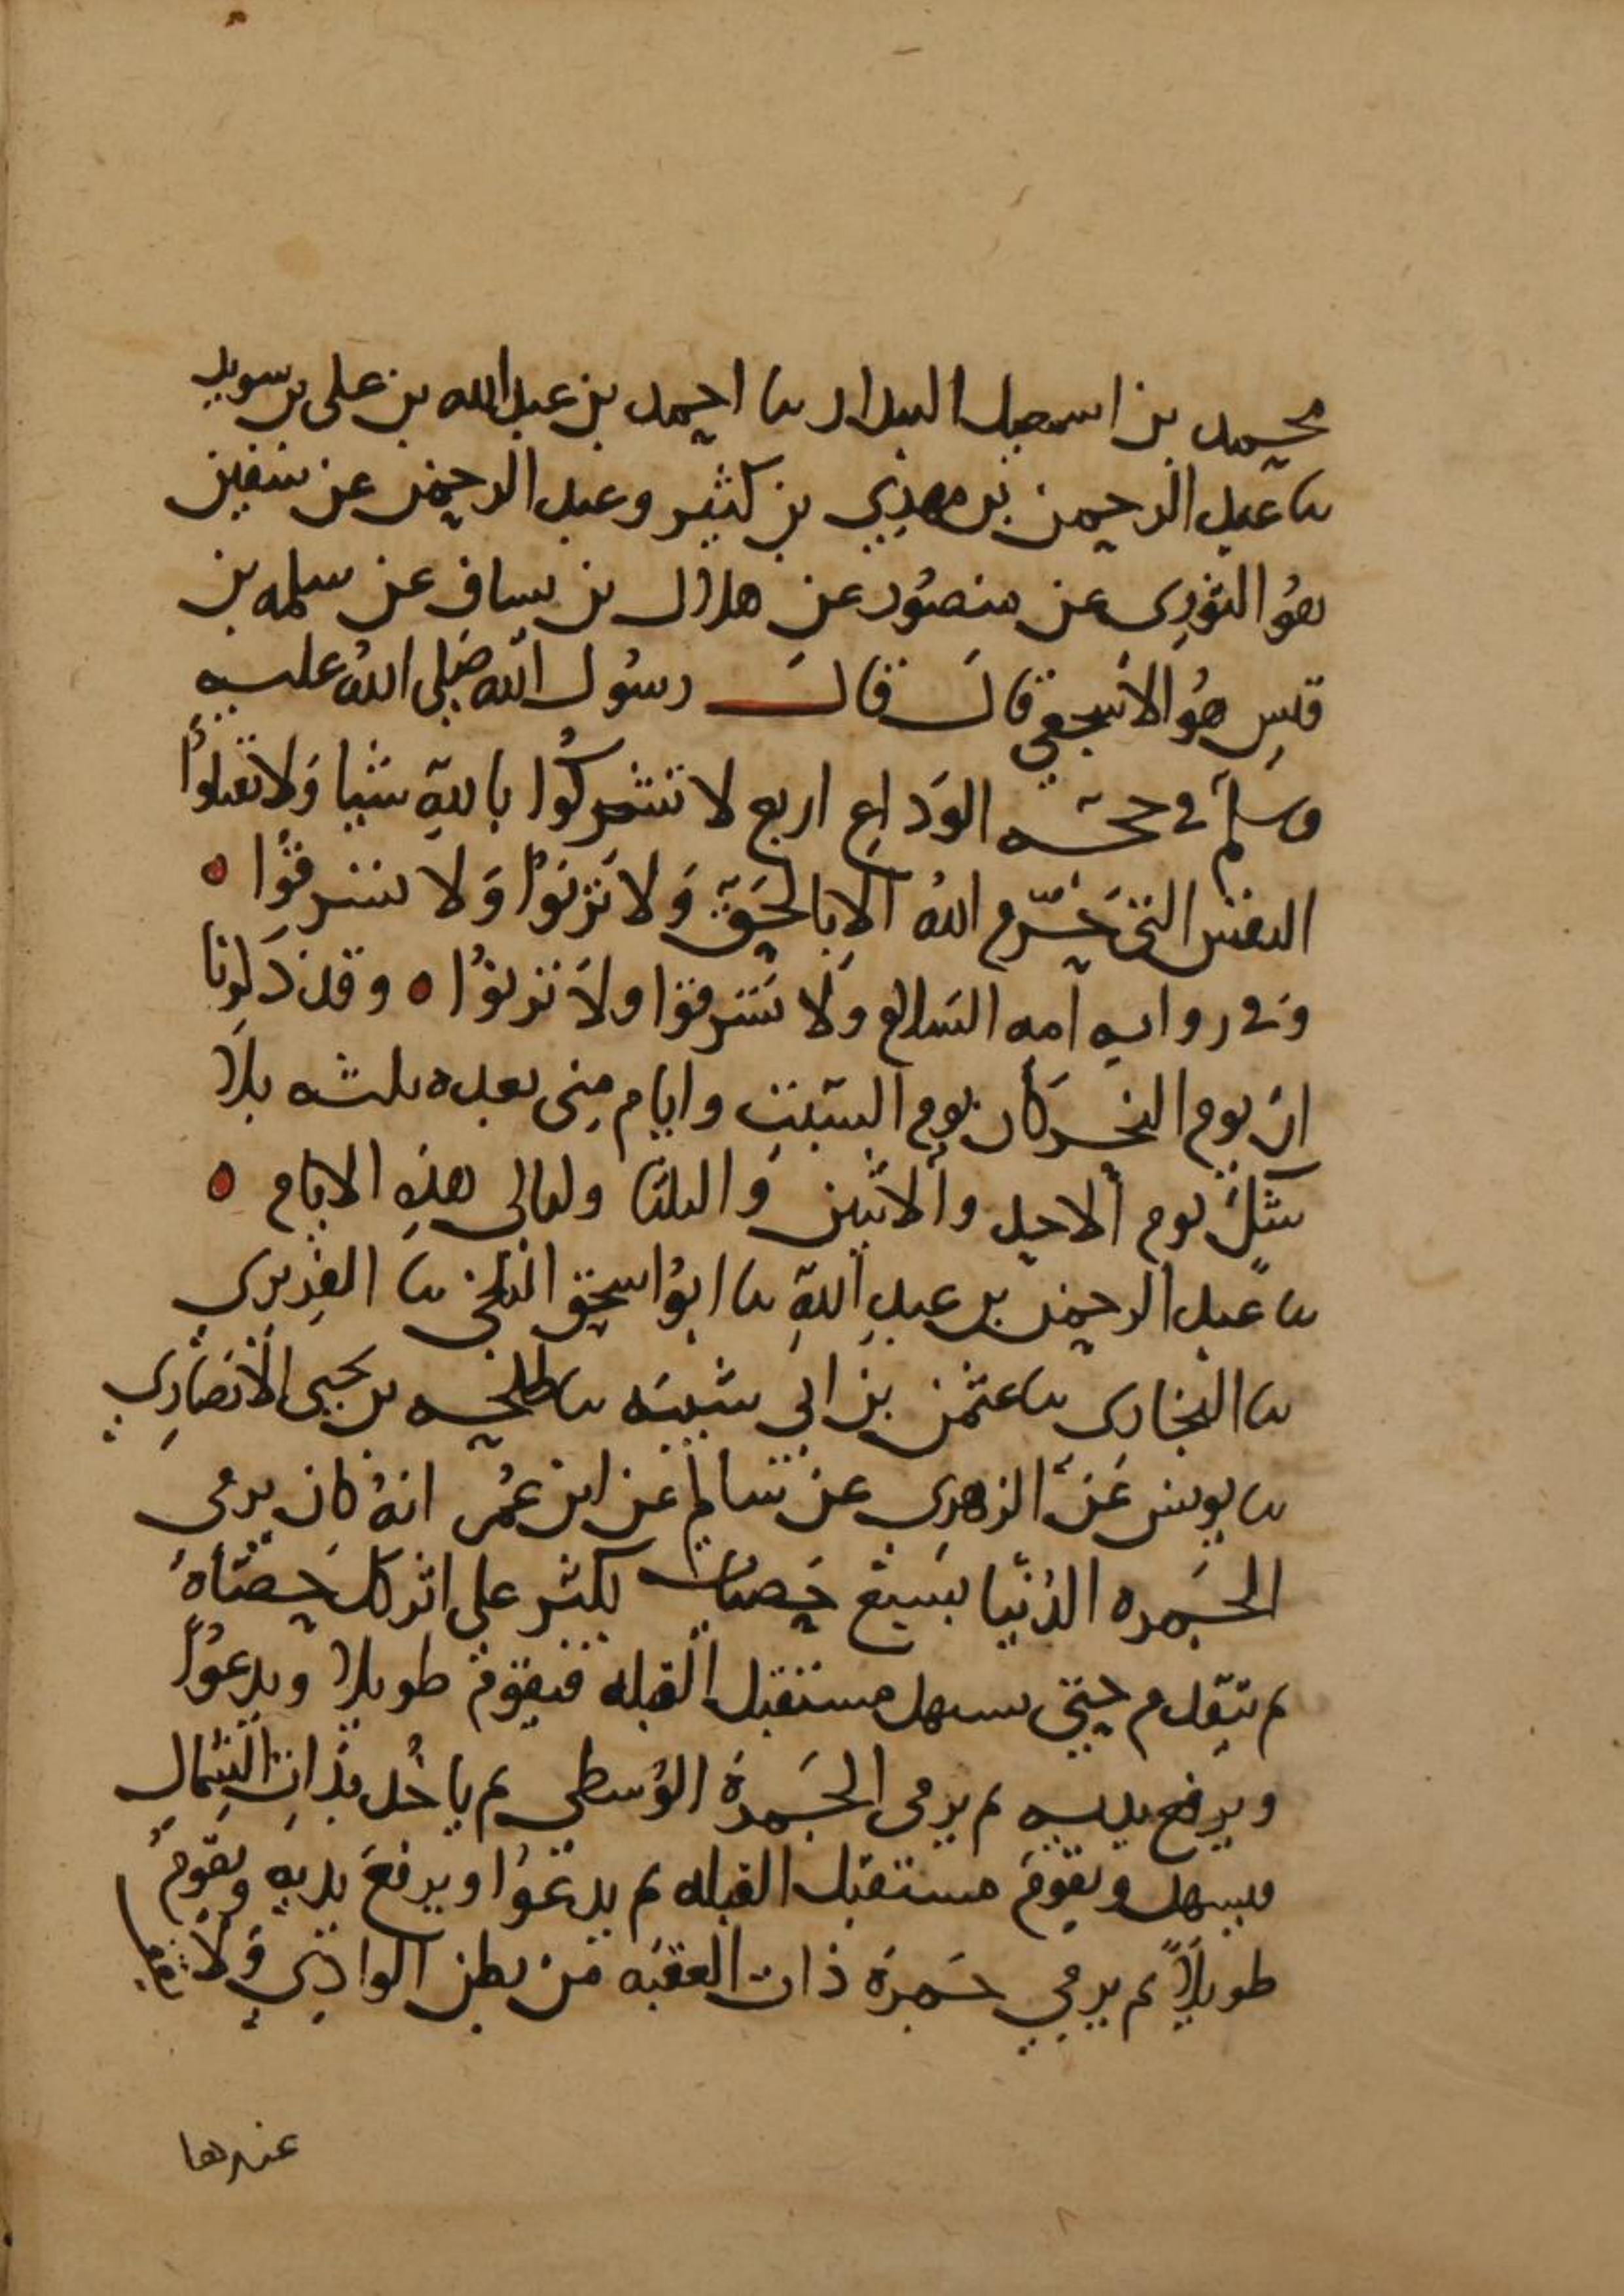 محمد بن اسمعيل البندار نا احمد بن عبد الله بن علي بن سويد
نا عبد الرحمن بن مهدي بن كثير وعبد الرحمن عن سفين
هو الثوري عن منصور عن هلال بن يساف عن سلمه بن
قيس هُو الاشجعي قال قال رسُول الله صلى الله عليه
وسلم في حجه الوَداعِ اربع لا تشركُوا باللهِ شيا وَلا تقتلوُا
النفس التي حَرّم اللهُ الا بالحَقِ وَلا تَزنوُا وَلا تسرقُوا ه
وَفي روايه امه السالع ولا تَسرقوا ولاَ تزنوُا ه وقد ذَكرنا
ان يوم النحر كان يوم السَبتِ وايام مِنى بعده ثلثه بلا
شكٍ يوم الاحد والاثنين وَالثلثا وليالي هذهِ الايام ه
نا عَبد الرحمن بن عبدِ اللهِ نا ابوُ اسحق البلخي نا الفِربري
نا البخارِي نا عثمن بن ابي شيبَه نا طلحه بن يحيى الانصَارِي
نا يونس عَن الزهري عن سالم عن ابن عُمر انهُ كان يرمي
الجَمره الدُنيا بسَبع حَصيات يكبّر على اثر كل حصَاهٍ
ثم يتقدم حتى يسهل مستقبل القبله فيقوم طويلا ويدعوُا
ويرفع يديه ثم يرمي الجَمرةَ الوُسطي ثم ياخُد بذاتِ الشِمالِ
فيسهل ويقومَ مستقبل القبله ثم يدعُوا ويرفعَ يديهِ ويقومُ
طويلاً ثم يرمي جَمرة ذات العقبَه من بطن الوادِي وَلا يقف
عندها